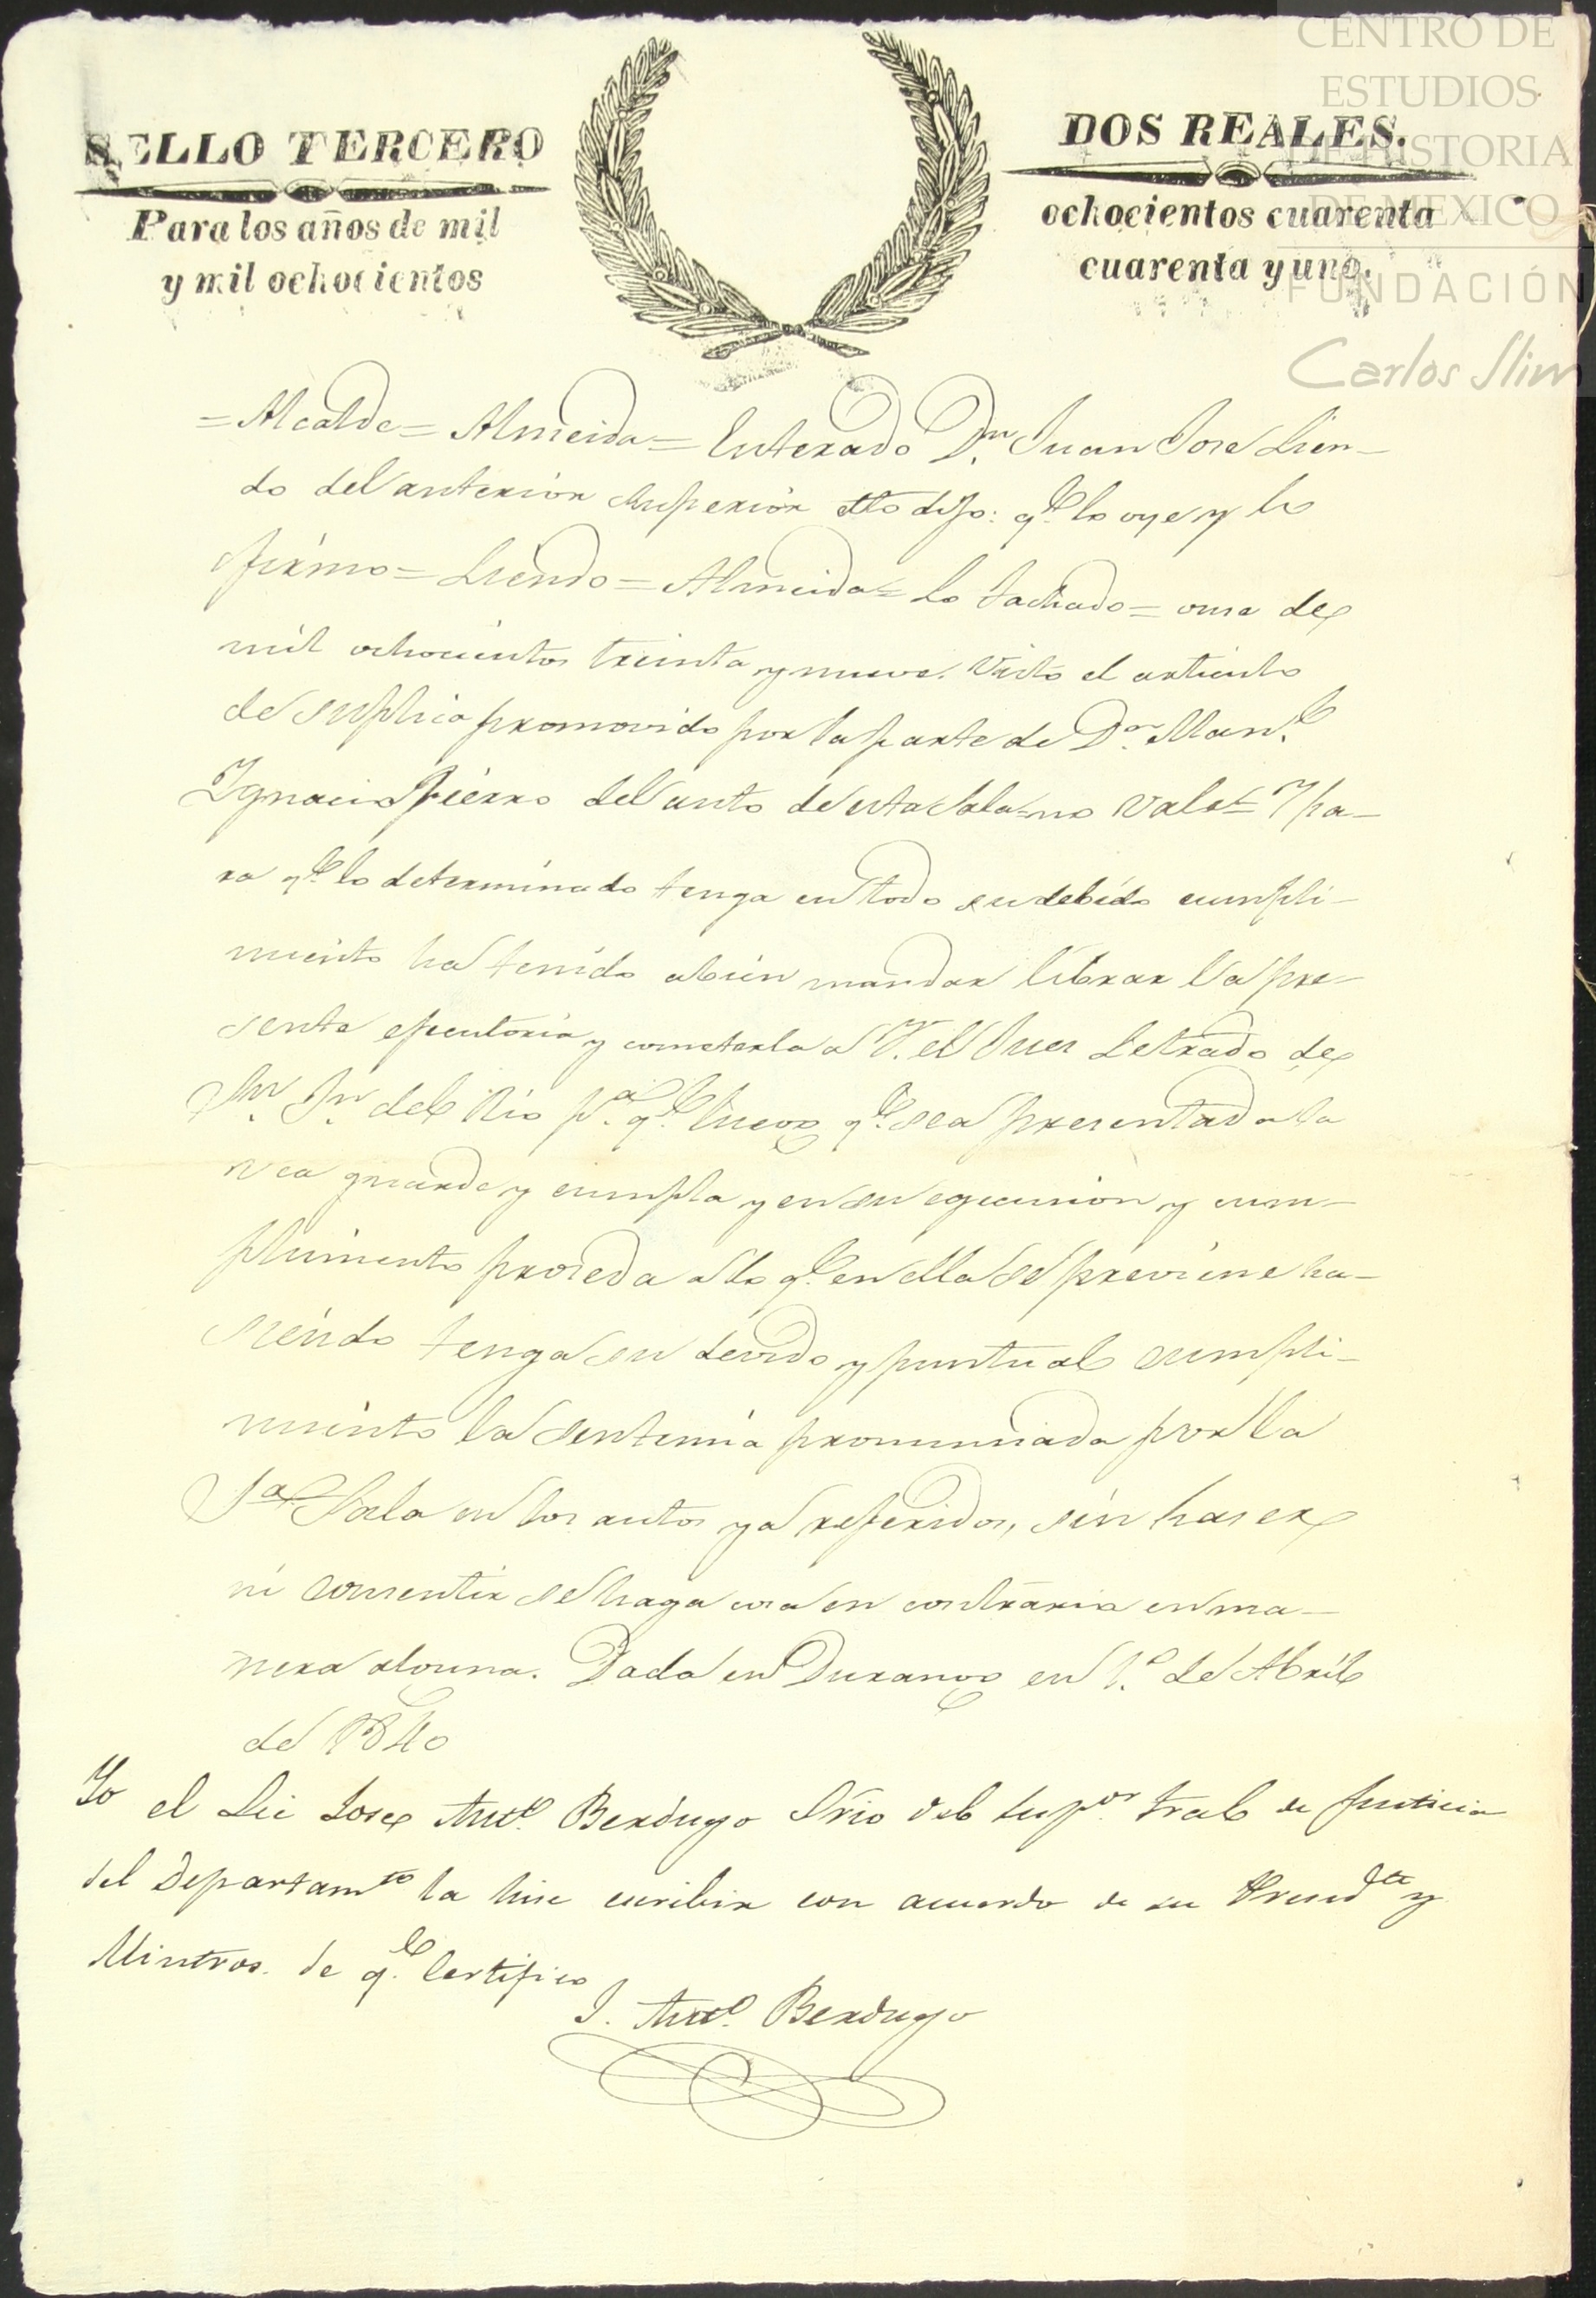 SELLO TERCERO
Para los años de mil
y mil ochocientos
DOS REALES.
ochocientos cuarenta
cuarenta y uno.
CENTRO DE
ESTUDIOS
DE HISTORIA
DE MEXICO
FUNDACIÓN
Carlos Slim
=Alcalde= Almeida= Enterado Dn. Juan Jose Lien-
do del anterior Superior Atto dijo: qe. lo oye y lo
firmo= Liendo= Almeida= Lo tachado= onse de
mil ochocientos treinta y nueve. Visto el articulo
de suplica promovido por la parte de Dn. Manl.
Ignacio Fierro del auto de esta Sala=no vale= Y pa-
ra qe. lo determinado tenga en todo su debido cumpli-
miento ha tenido abien mandar librar la pre-
sente ejecutoria y cometerla a V. el Jues Letrado de
Sn. Jn. del Rio pa. qe. luego qe. sea presentada la
vea guarde y cumpla y en su egecucion y cum-
plimiento proseda a lo qe. en ella se previene ha-
siendo tenga su devido y puntual cumpli-
miento la sentencia pronunciada por la
Sala en los autos ya referidos, sin haser
ni consentir se haga cosa en contrario en ma-
nera alguna. Dada en Durango en 1o. de Abril
de 1840
Yo el Lic Jose Anto. Berdugo Srio del Supor. Tral de Justicia
del Departamto la hise escribir con acuerdo de su Presidte y
Mintros. de qe. Certifico
J. Anto. Berdugo